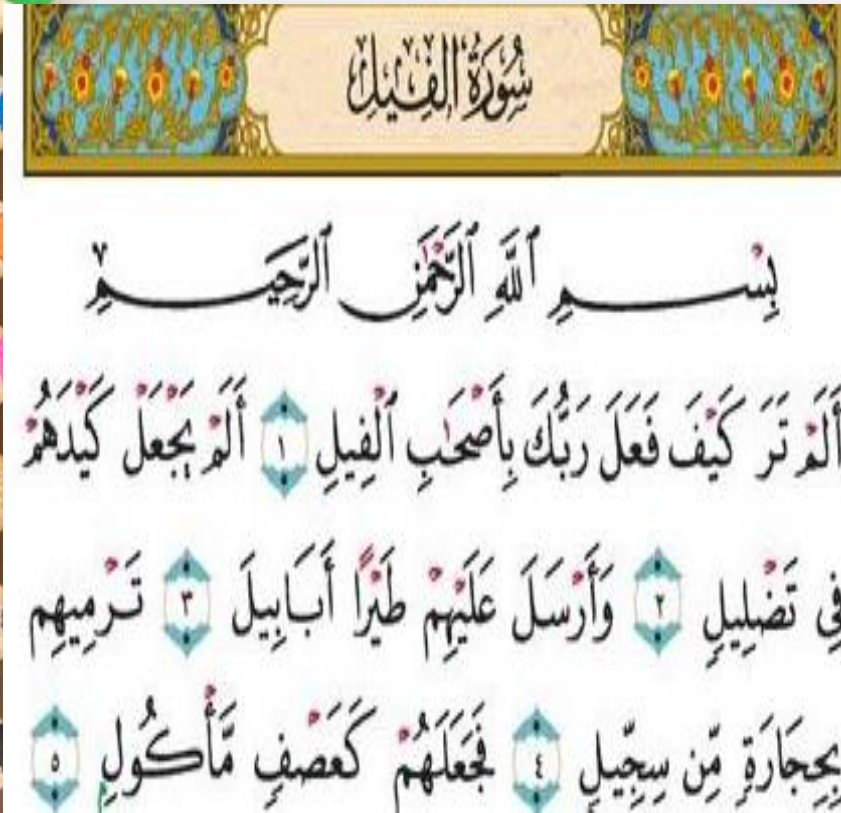 سُورَةُ الْفِيلِ
بِسْمِ ٱللَّهِ ٱلرَّحْمَٰنِ ٱلرَّحِيمِ
أَلَمْ تَرَ كَيْفَ فَعَلَ رَبُّكَ بِأَصْحَٰبِ ٱلْفِيلِ ١ أَلَمْ يَجْعَلْ كَيْدَهُمْ
فِي تَضْلِيلٍ ٢ وَأَرْسَلَ عَلَيْهِمْ طَيْرًا أَبَابِيلَ ٣ تَرْمِيهِم
بِحِجَارَةٍ مِّن سِجِّيلٍ ٤ فَجَعَلَهُمْ كَعَصْفٍ مَّأْكُولٍ ٥